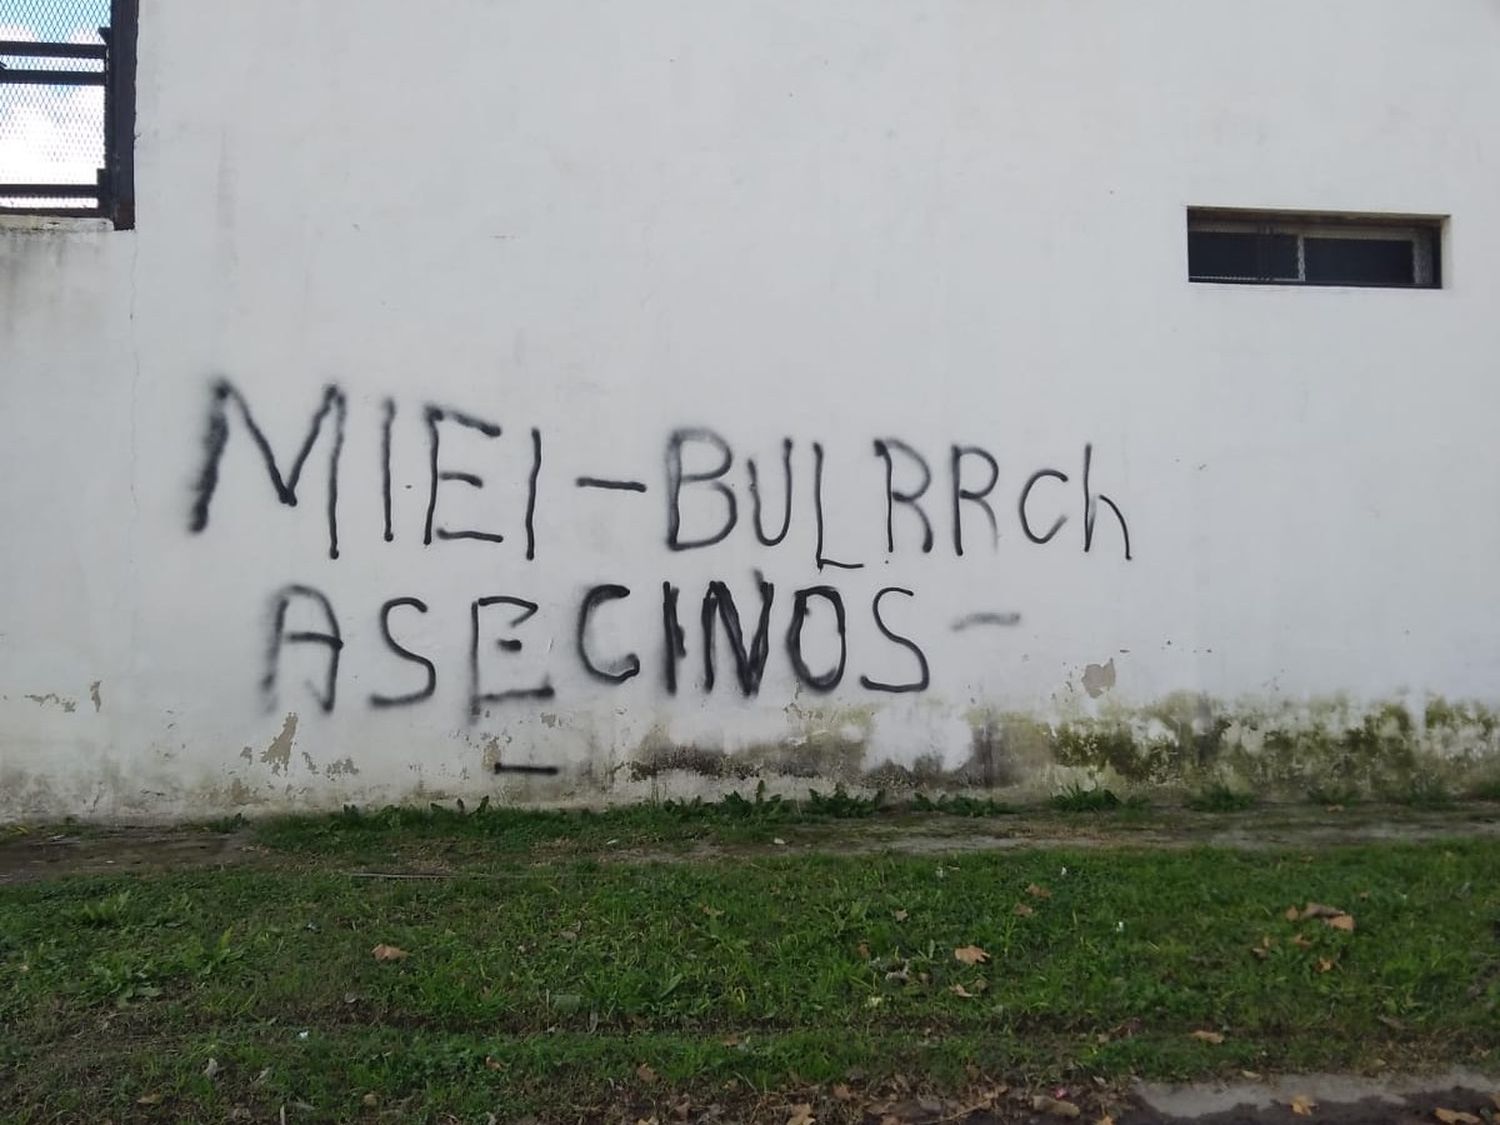 MIEI-BULRRch
ASECINOS-